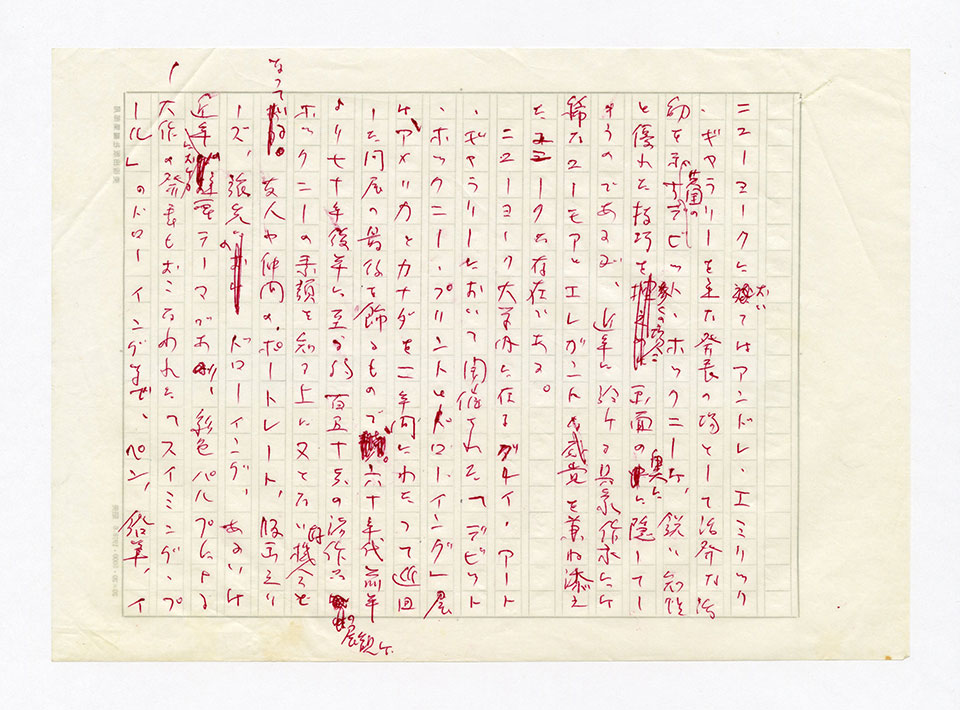 ニューヨークに於てはアンドレ・エミリック
・ギャラリーを主な発表の場として活発な活
動を示す英国のデビッド・ホックニーは、鋭い知性
と優れた技巧を 画面の奥に隠してし
まうのであるが、近年に於ける具象作家には
稀なユーモアとエレガントな感覚を兼ね添え
たユニークな存在である。
ニューヨーク大学内に在るグレイ・アート
・ギャラリーにおいて開催された「デビット
・ホックニー・プリントとドローイング」展
は、アメリカとカナダを二年間にわたって巡回
した同展の最後を飾るもので、六十年代前半
より七十年後半に至る約百五十点の諸作品の展観は、
ホックニーの素顔を知る上に又とない機会と
なっている。友人や仲間のポートレート、版画シリ
ーズ、旅先のドローイング、あるいは
近年の 重要テーマであり、彩色パルプによる
大作の発表もおこなわれた「スイミング・プ
ール」のドローイングまで、ペン、鉛筆、イ